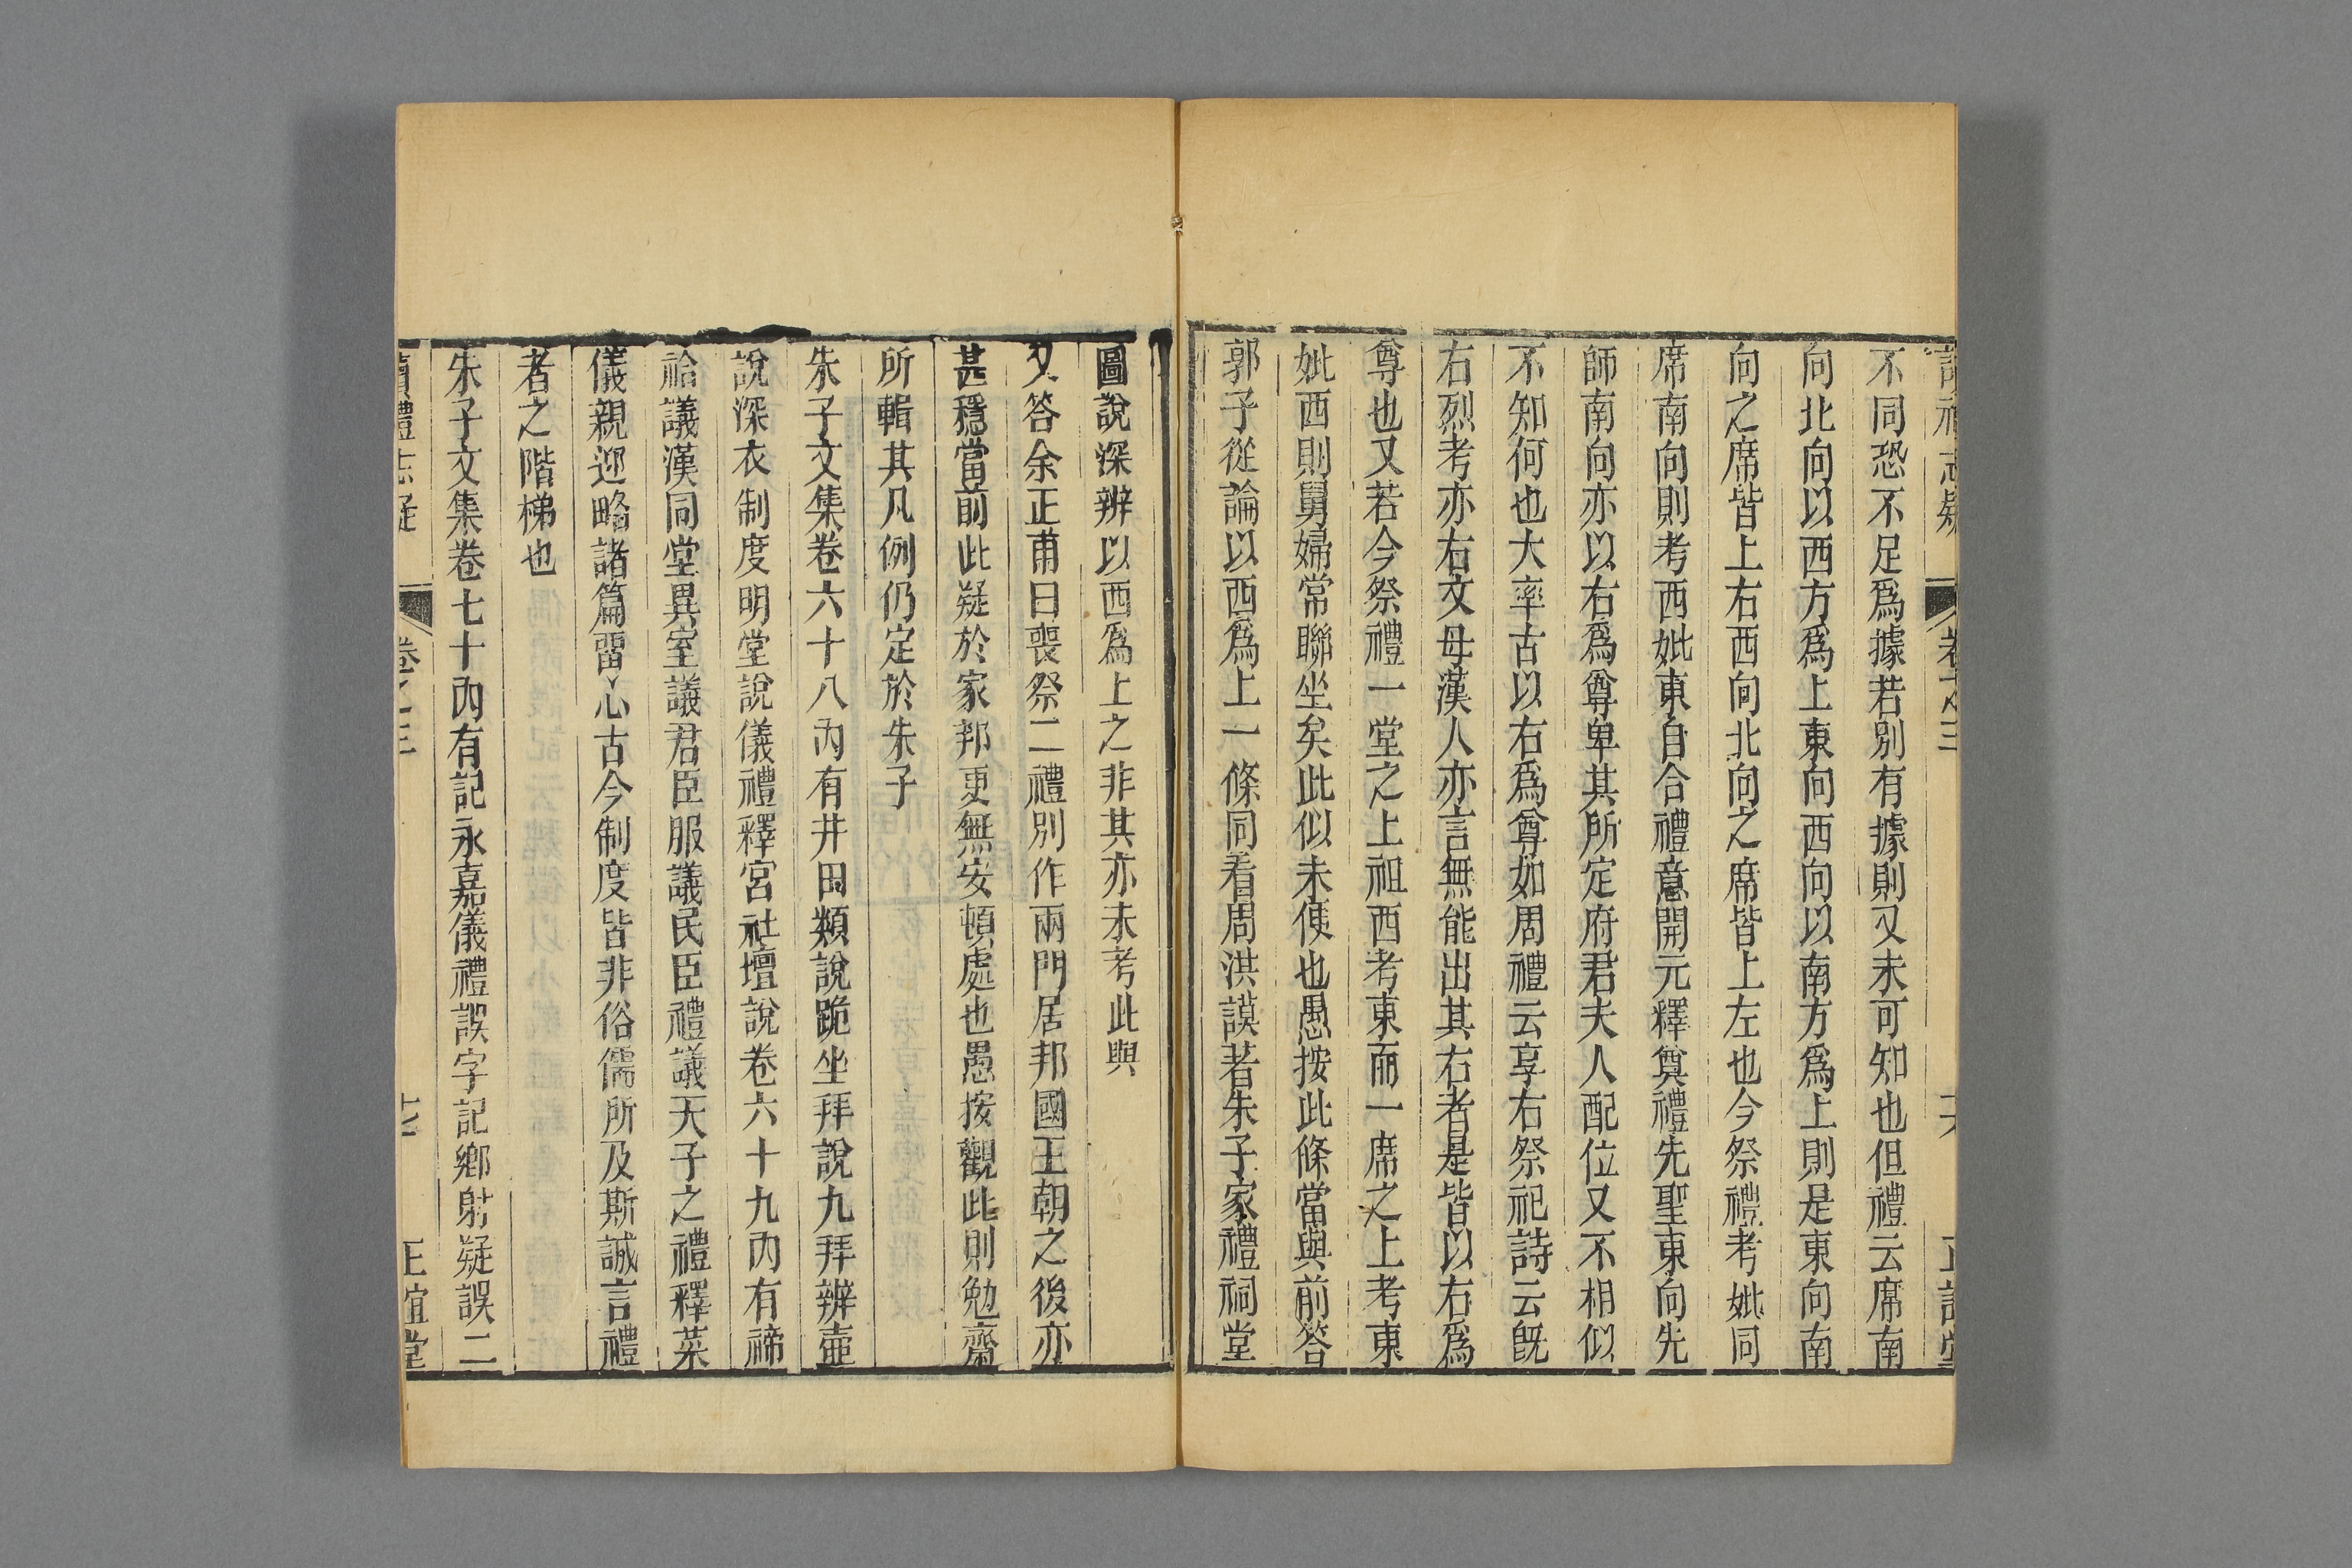 不同恐不足爲據若別有據則又未可知也但禮云席南
向北向以西方爲上東向西向以南方爲上則是東向南
向之席皆上右西向北向之席皆上左也今祭禮考妣同
席南向則考西妣東自合禮意開元釋奠禮先聖東向先
師南向亦以右爲尊卑其所定府君夫人配位又不相似
不知何也大率古以右爲尊如周禮云享右祭祀詩云旣
右烈考亦右文母漢人亦言無能出其右者是皆以右爲
尊也又若今祭禮一堂之上祖西考東而一席之上考東
妣西則舅婦常聯坐矣此似未便也愚按此條當與前答
郭子從論以西爲上一條同看周洪謨著朱子家禮祠堂
圖說深辨以西爲上之非其亦未考此與
又答余正甫曰喪祭二禮別作兩門居邦國王朝之後亦
甚穩當前此疑於家邦更無安頓處也愚按觀此則勉齋
所輯其凡例仍定於朱子
朱子文集卷六十八內有井田類說跪坐拜說九拜辨壺
說深衣制度明堂說儀禮釋宮社壇說卷六十九內有禘
祫議漢同堂異室議君臣服議民臣禮議天子之禮釋菜
儀親迎略諸篇畱心古今制度皆非俗儒所及斯誠言禮
者之階梯也
朱子文集卷七十內有記永嘉儀禮誤字記鄉射疑誤二
讀禮志疑 卷之三 十七 正誼堂